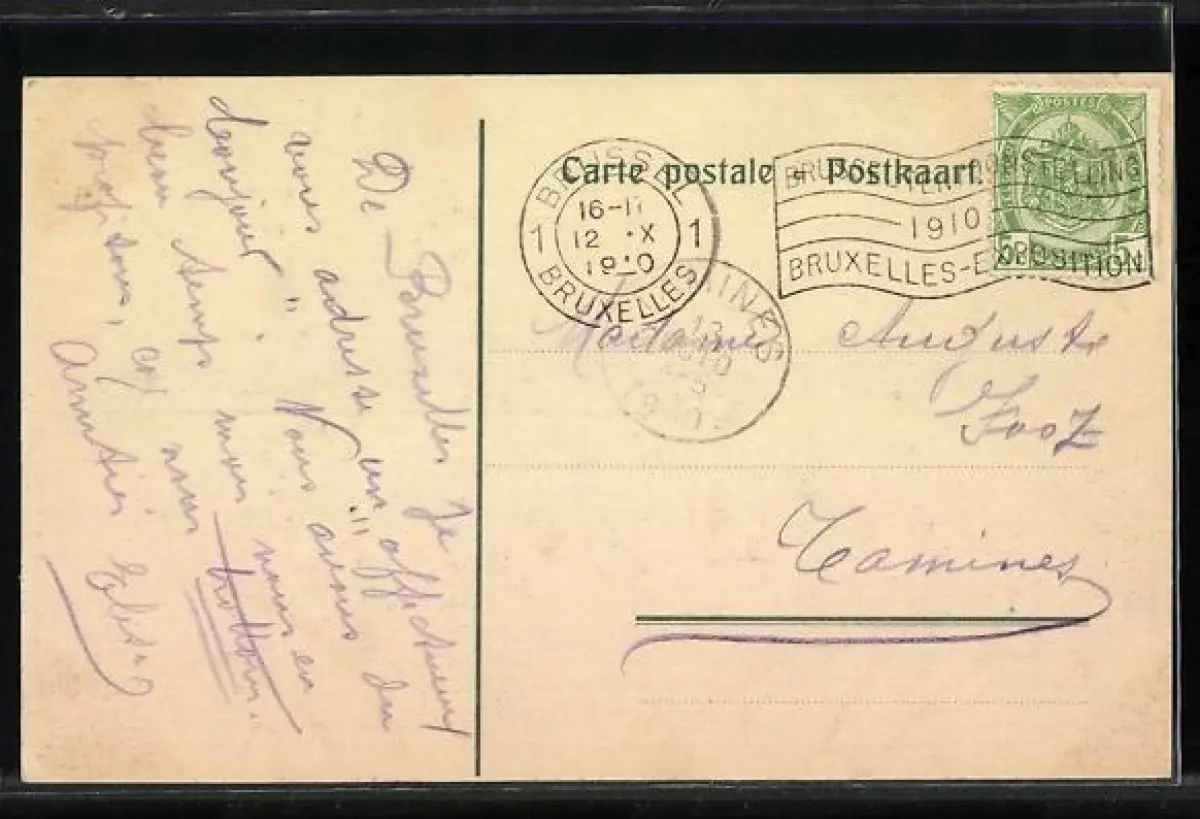 Carte postale - Postkaart
BRUSSEL
1 16-17 1
12 IX
1910
BRUXELLES
BRUSSEL TENTOONSTELLING
1910
BRUXELLES-EXPOSITION
POSTES
5
TAMINES
13
Madame Auguste
Fooz
Tamines
De Bruxelles je
vous adresse un affectueux
bonjour " Nous avons du
beau temps mais nous en
profitons, car nous trottons.
Amitiés Elisa